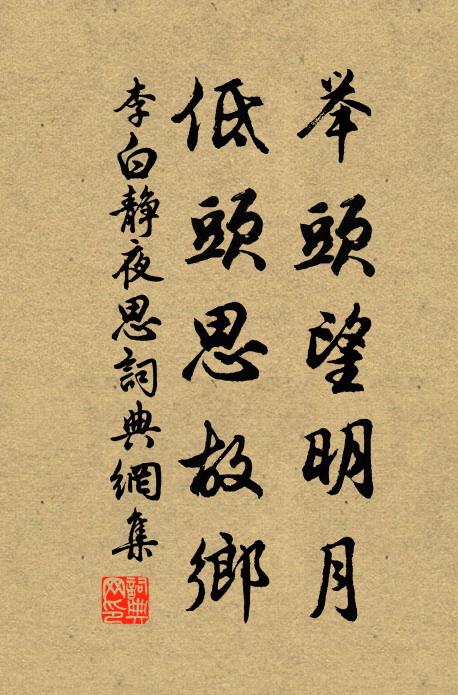 举頭望明月
低頭思故鄉
李白靜夜思詞典網集
詞典
网印